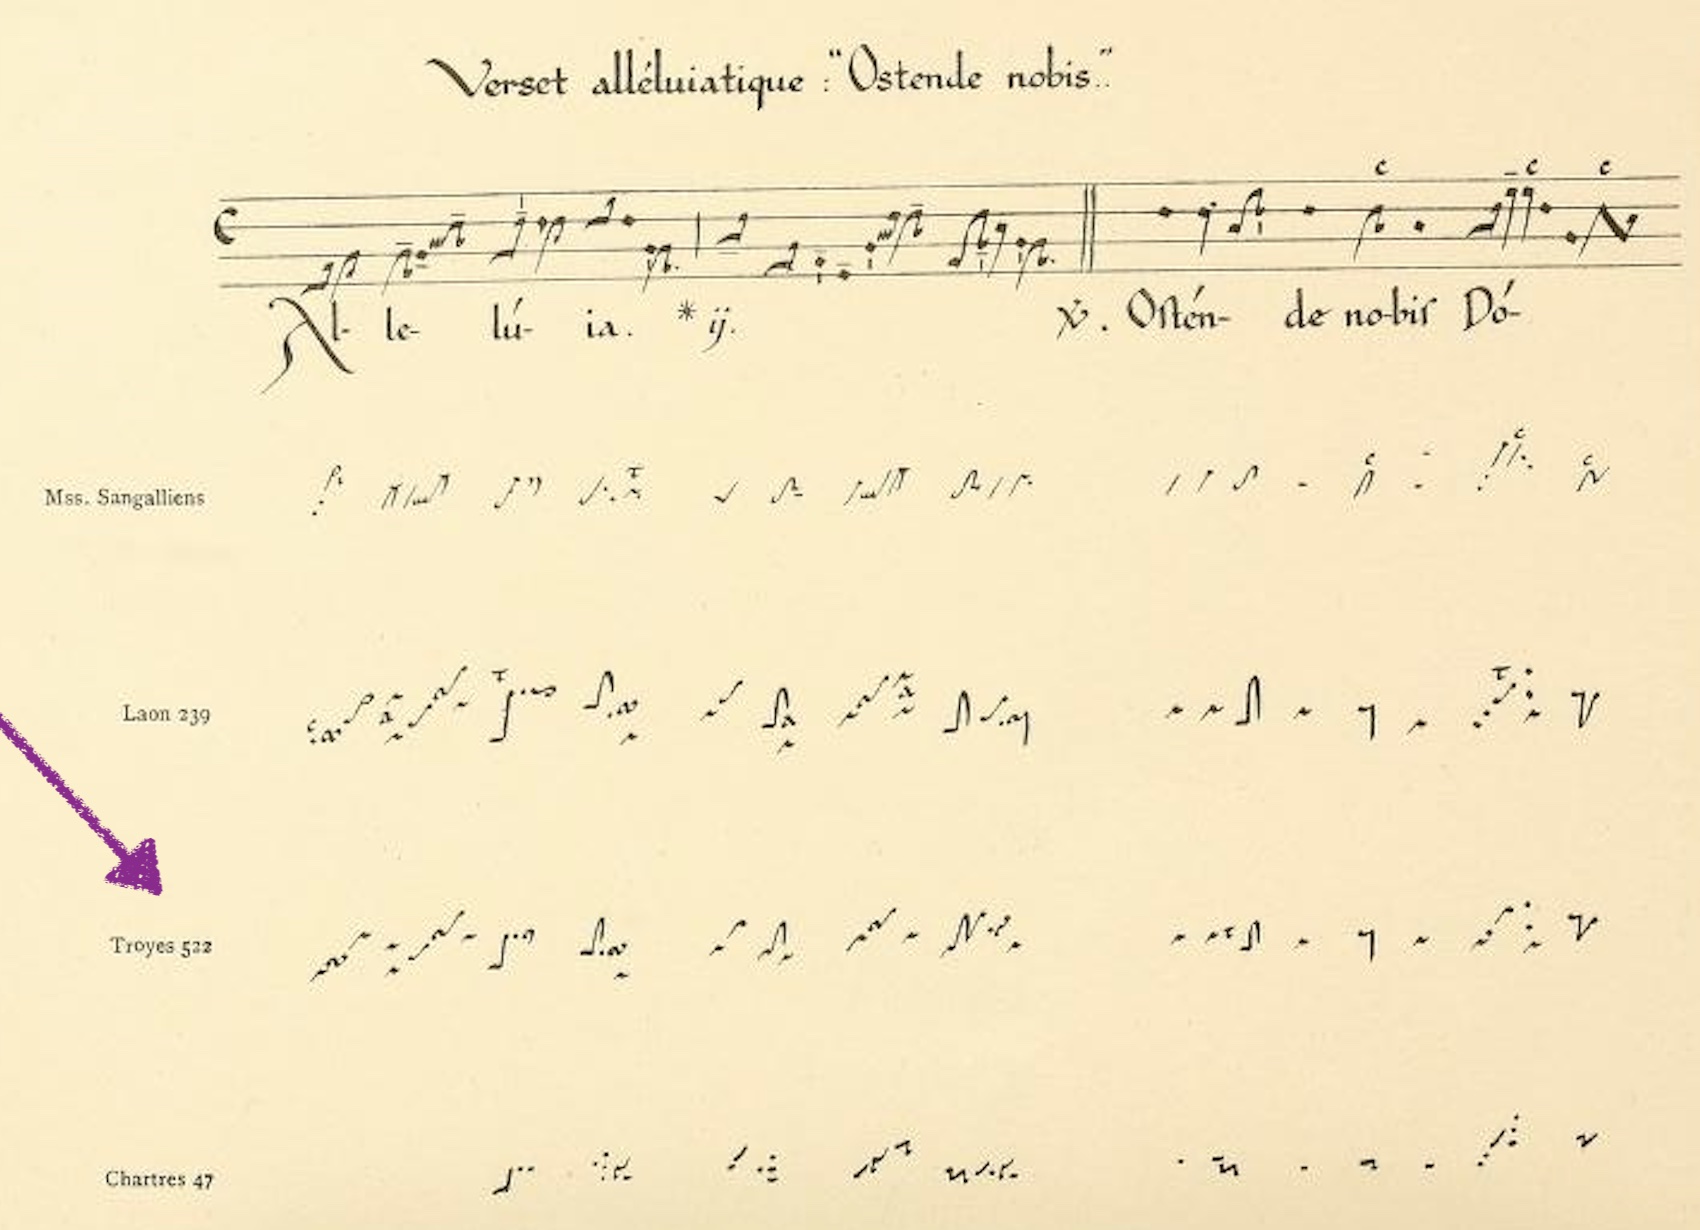 Verset alléluiatique : “Ostende nobis”.
c c c
Al- le- lú- ia. * ij. ℣. Ostén- de no-bis Dó-
Mss. Sangalliens
Laon 239
Troyes 522
Chartres 47